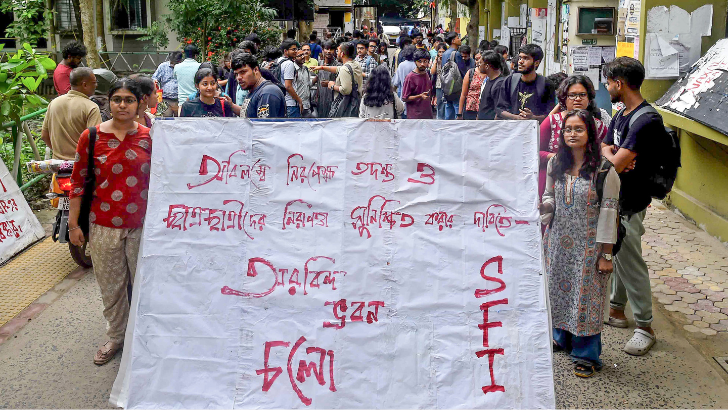 অবিলম্বে নিরপেক্ষ তদন্ত ও
ছাত্র-ছাত্রীদের নিরাপত্তা সুনিশ্চিত করার দাবিতে-
অরবিন্দ
ভবন
চলো
SFI